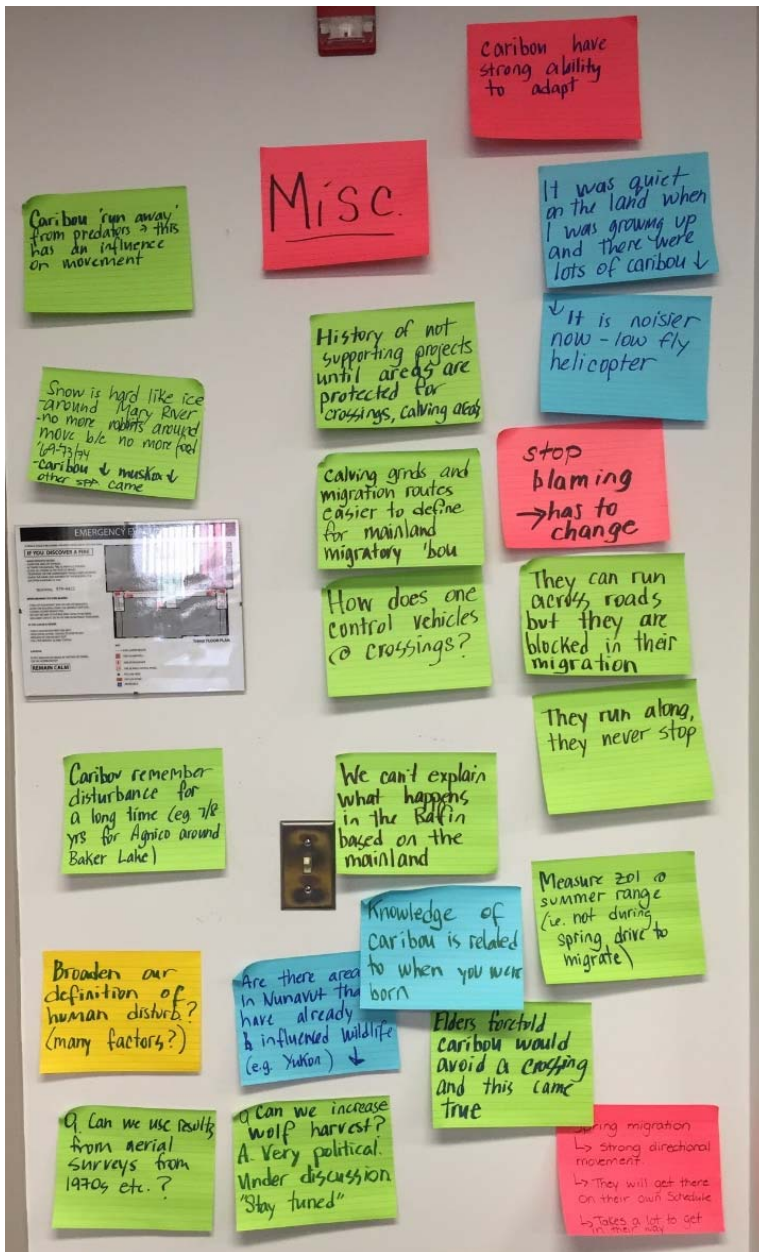 caribou have
strong ability
to adapt
Misc.
Caribou 'run away'
from predators → this
has an influence
on movement
It was quiet
on the land when
I was growing up
and there were
lots of caribou ↓
↓ It is noisier
now - low fly
helicopter
History of not
supporting projects
until areas are
protected for
crossings, calving areas
Snow is hard like ice
-around Mary River
-no more rabbits around
move b/c no more food
'69-73/74
-caribou ↓ muskox ↓
other spp. came
stop
blaming
→ has to
change
Calving grnds and
migration routes
easier to define
for mainland
migratory 'bou
EMERGENCY
IF YOU DISCOVER A FIRE
REMAIN CALM
THIRD FLOOR PLAN
How does one
control vehicles
@ crossings?
They can run
across roads
but they are
blocked in their
migration
They run along,
they never stop
Caribou remember
disturbance for
a long time (eg. 7/8
yrs for Agnico around
Baker Lake)
We can't explain
what happens
in the Baffin
based on the
mainland
Measure ZOI @
summer range
(i.e. not during
spring drive to
migrate)
Knowledge of
caribou is related
to when you were
born
Broaden our
definition of
human disturb.?
(many factors?)
Are there area
in Nunavut tha
have already
influenced wildlife
(e.g. Yukon) ↓
Elders foretold
caribou would
avoid a crossing
and this came
true
Q. Can we use results
from aerial
surveys from
1970s etc.?
Q Can we increase
wolf harvest?
A. Very political.
Under discussion
"Stay tuned"
Spring migration
↳ Strong directional
movement.
↳ They will get there
on their own schedule
↳ Takes a lot to get
in their way